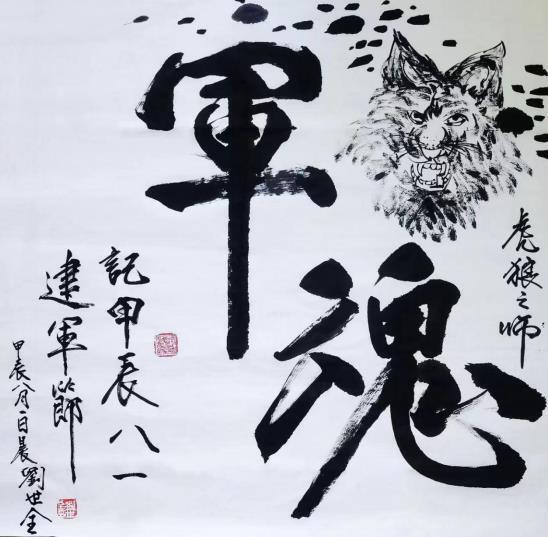 軍魂
虎狼之师
記甲辰八一
建軍節
甲辰八月一日晨劉世全